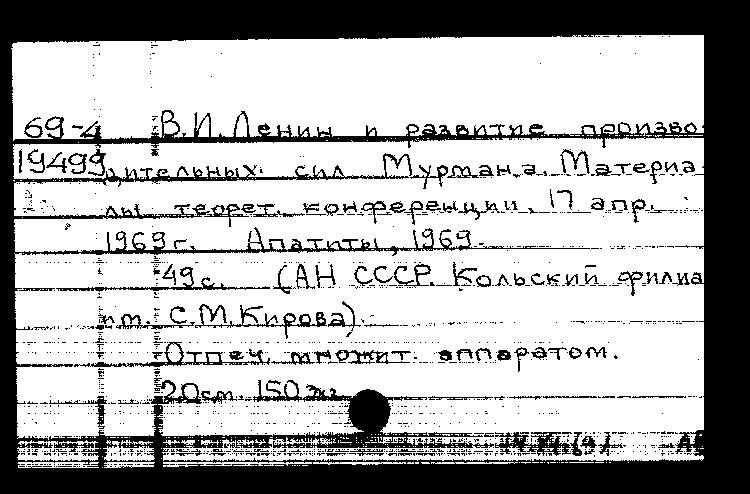 69-4 В.И.Ленин и развитие произво-
19499 дительных сил Мурмана. Материа-
лы теорет. конференции. 17 апр.
1969 г. Апатиты, 1969.
49 с. (АН СССР. Кольский филиа
им. С.М.Кирова).
Отпеч. множит. аппаратом.
20 см 150 экз.